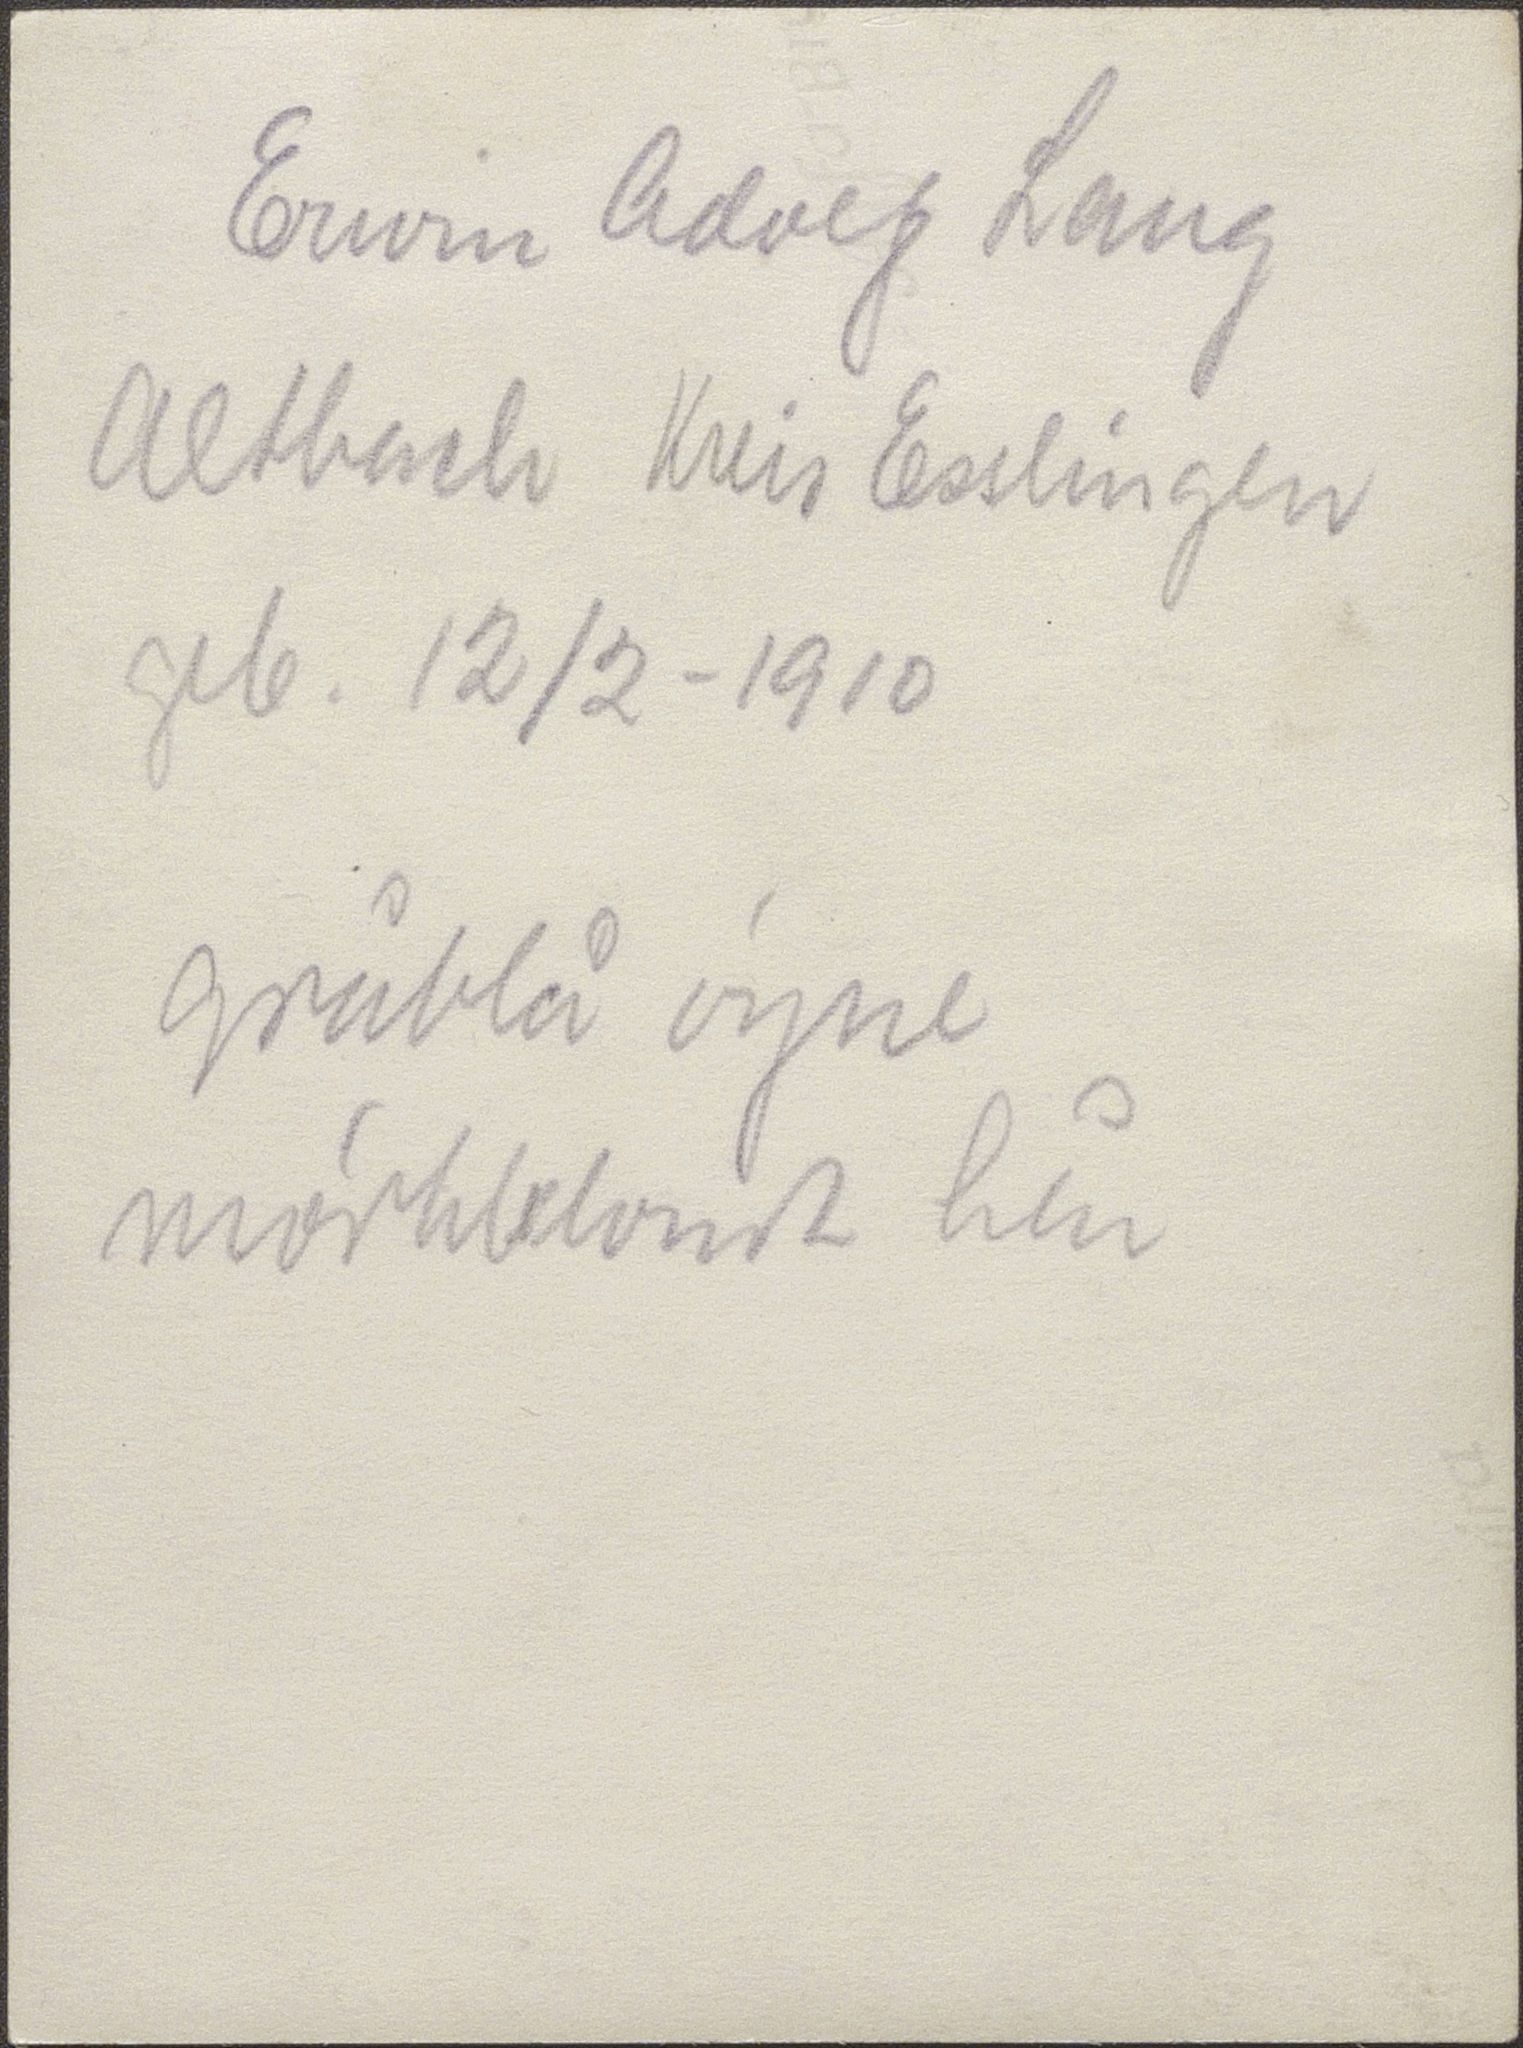 Erwin Adolf Lang
Altbach Kreis Esslingen
geb. 12/2-1910
gråblå öyne
mörkblondt hår